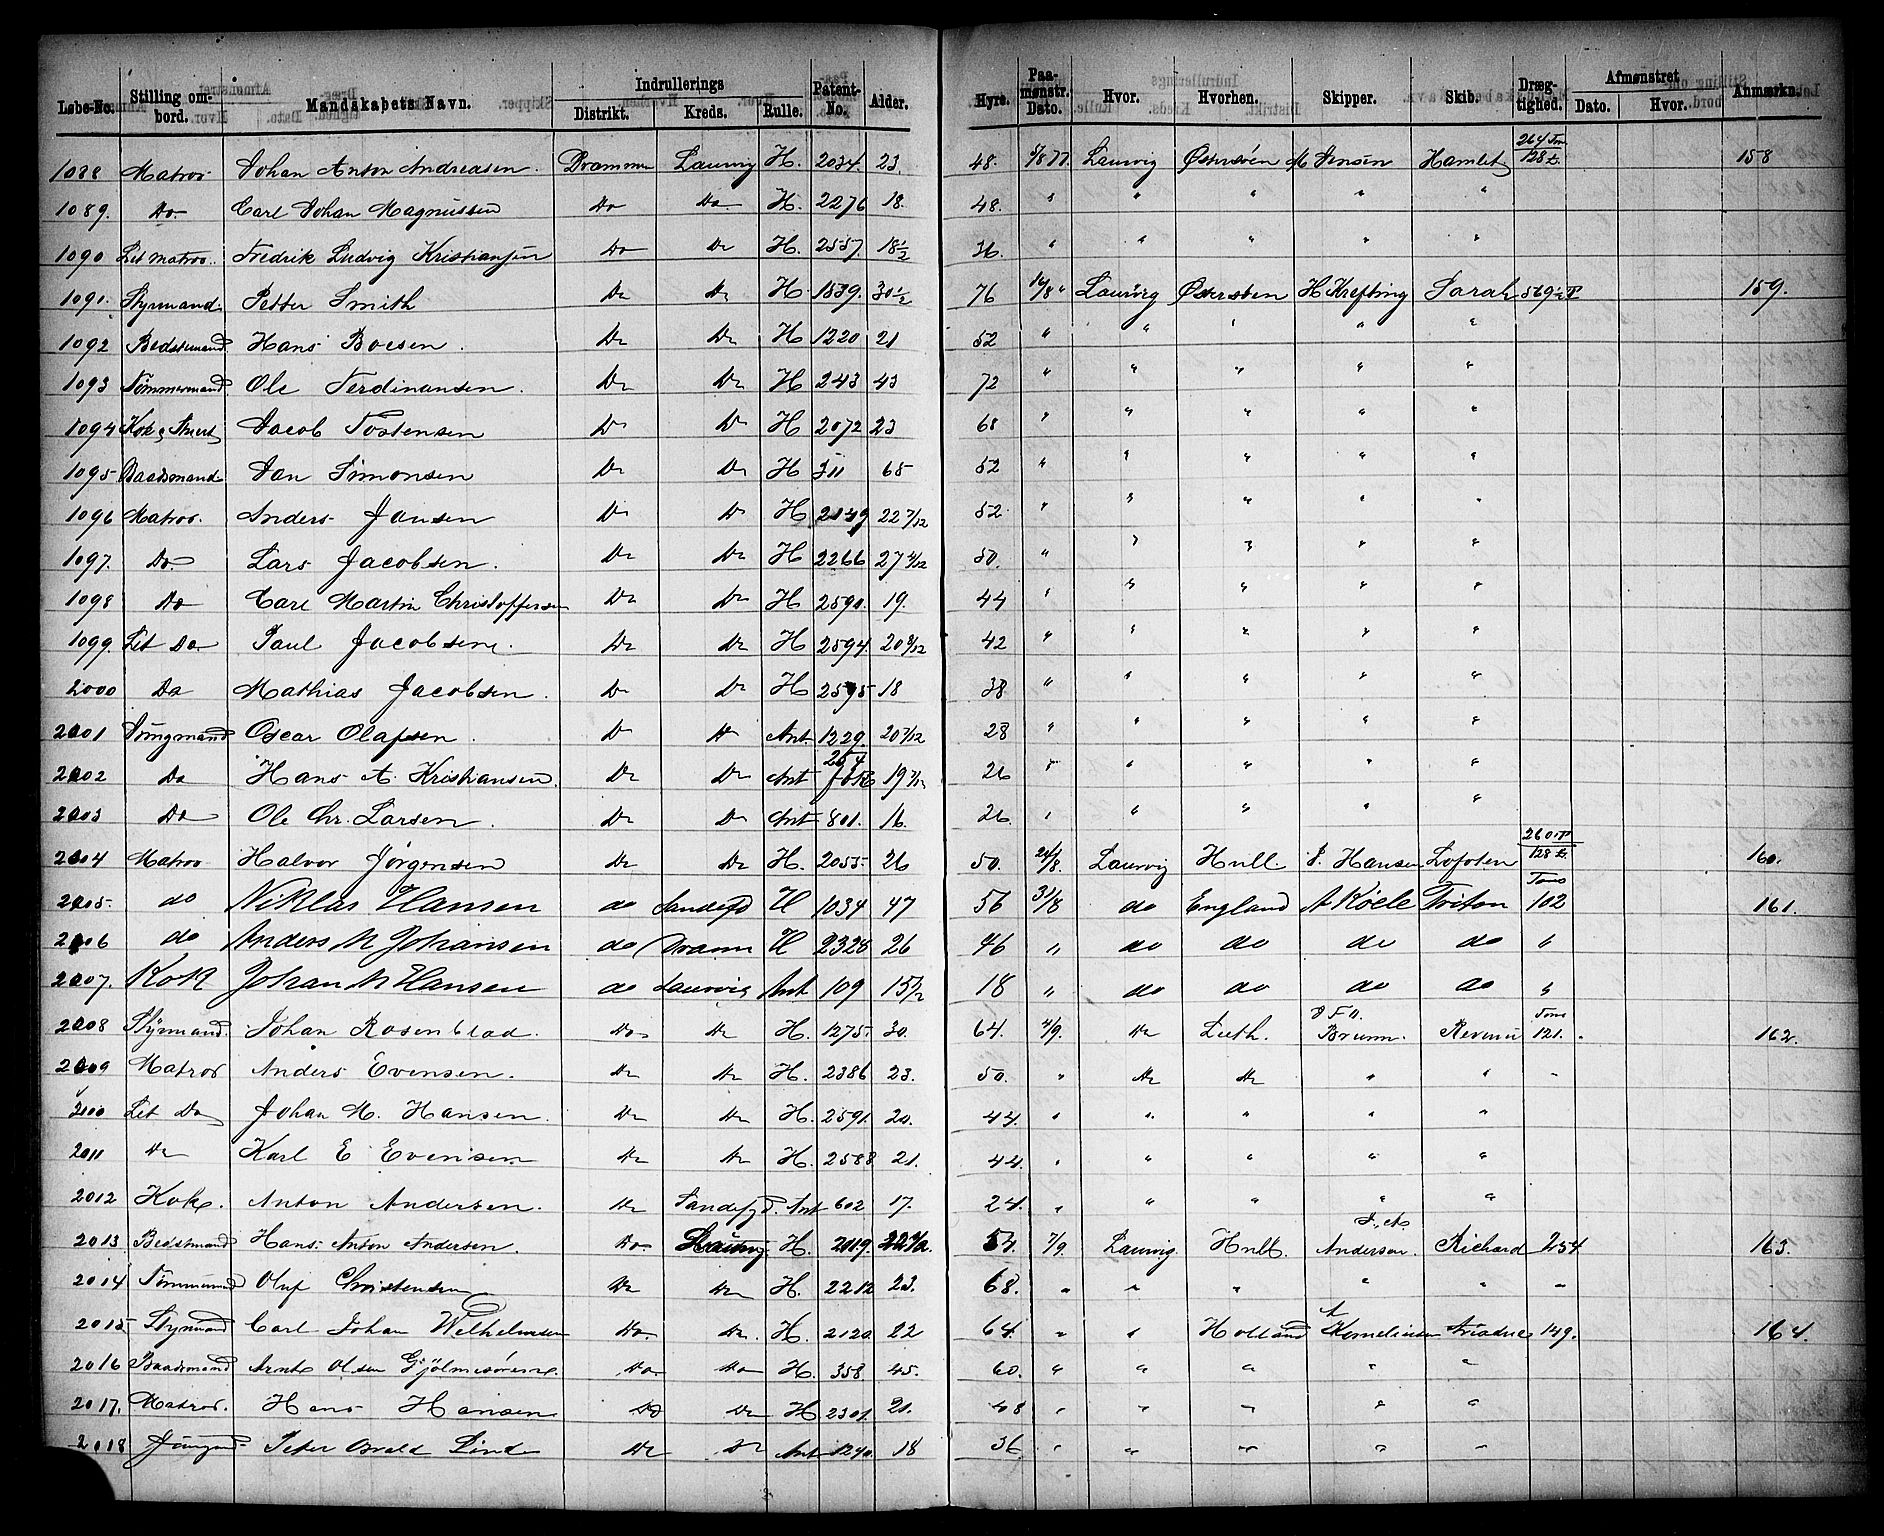 Løbe-No. Stilling ombord. Mandskabets Navn. Indrullerings Distrikt. Kreds. Rulle. Patent-No. Alder. Hyre. Paamønstr. Dato. Hvor. Hvorhen. Skipper. Skib. Drægtighed. Afmønstret Dato. Hvor. Anmærkn.
1088 Matros Johan Anton Andreasen. Drammen Laurvig H. 2034. 23. 48. 5/8 77 Laurvig Østersøen M Jensen Hamlet 264 Ton 128 L. 158
1089. Do. Carl Johan Magnussen Do Do H. 2276 18. 48. " " " " "
1090 Let matros. Fredrik Ludvig Kristiansen Do Do H. 2557. 18 1/2 36. " " " " "
1091. Styrmand Petter Smith Do Do H. 1539. 30 1/2 76 10/8 " Laurvig Østersøen H Krefting Sarah 569 1/2 T 159.
1092 Bedstemand Hans Boesen. Do Do H 1220 21 52 " " " " "
1093 Tømmermand Ole Ferdinansen. Do Do H 243 43 72 " " " " "
1094 Kok & Stuert Jacob Tostensen Do Do H 2072 23 68 " " " " "
1095 Baadsmand Jan Simonsen Do Do H 311 65 52 " " " " "
1096 Matros. Anders Jansen Do Do H 2149 22 7/12 52. " " " " "
1097. Do. Lars Jacobsen. Do Do H 2266 27 4/12 50. " " " " "
1098 Do Carl Martin Christoffersen Do Do H 2590. 19. 44 " " " " "
1099. Let Do Paul Jacobsen. Do Do H 2594 20 8/12 42 " " " " "
2000 Do Mathias Jacobsen. Do Do H 2595 18 38 " " " " "
2001 Jungmand Oscar Olafsen. Do Do Ant. 1229. 20 7/12 28 " " " " "
2002 Do Hans A. Kristiansen. Do Do Ant 254 19 7/12 26 " " " " "
2003 Do Ole Chr. Larsen. Do Do Ant. 801. 16. 26. " " " " "
2004 Matros Halvor Jørgensen Do Do H. 2055 26 50. 24/8. Laurvig Hull. P. Hansen Lofoten 260 T 128 L. 160.
2005. do Niklas Hansen do Sandefd H 1034 47 56 31/8 do England A Køele Triton Tons 102 161.
2006 do Anders M Johansen do Dramn H 2328 26 46 " do do do do "
2007. Kok Johan M Hansen do Laurvig Ant 109 15 1/2 18 " do do do do "
2008 Styrmand. Johan Rosenblad. Do Do H. 1275 30. 64. 4/9. Do Leith. Bruun. Revenu Tons 121. 162.
2009 Matros Anders Evensen. Do Do H. 2386 23. 50. " Do Do " " "
2010 Let Do Johan M. Hansen. Do Do H. 2591. 20. 44. " " " " "
2011 Do Karl E Evensen Do Do H. 2588 21. 44. " " " " "
2012 Kok. Anton Andersen. Do Sandefjd. Ant 602 17. 24. " " " " "
2013 Bedstmand Hans Anton Andersen. Do Laurvig H. 2019. 54. 7/9. Laurvig Hull. Anderson. Richard 254 163.
2014 Tømmermand Oluf Christensen Do Do H. 2212 23. 68. " " " " " "
2015 Styrmand Carl Johan Wilhelmsen Do. Do. H. 2120 22 64. " " Holland A Kornelinsen Ariadne 149. 164.
2016 Baadsmand Arnt Olsen Do. Do H. 358. 45. 60. " " " " "
2017. Matros. Hans Hansen Do Do H 2301. 21. 48 " " " " "
2018 Jungmd. Peter Osvald Lind Do Do Ant 1240. 18 36. " " " " "